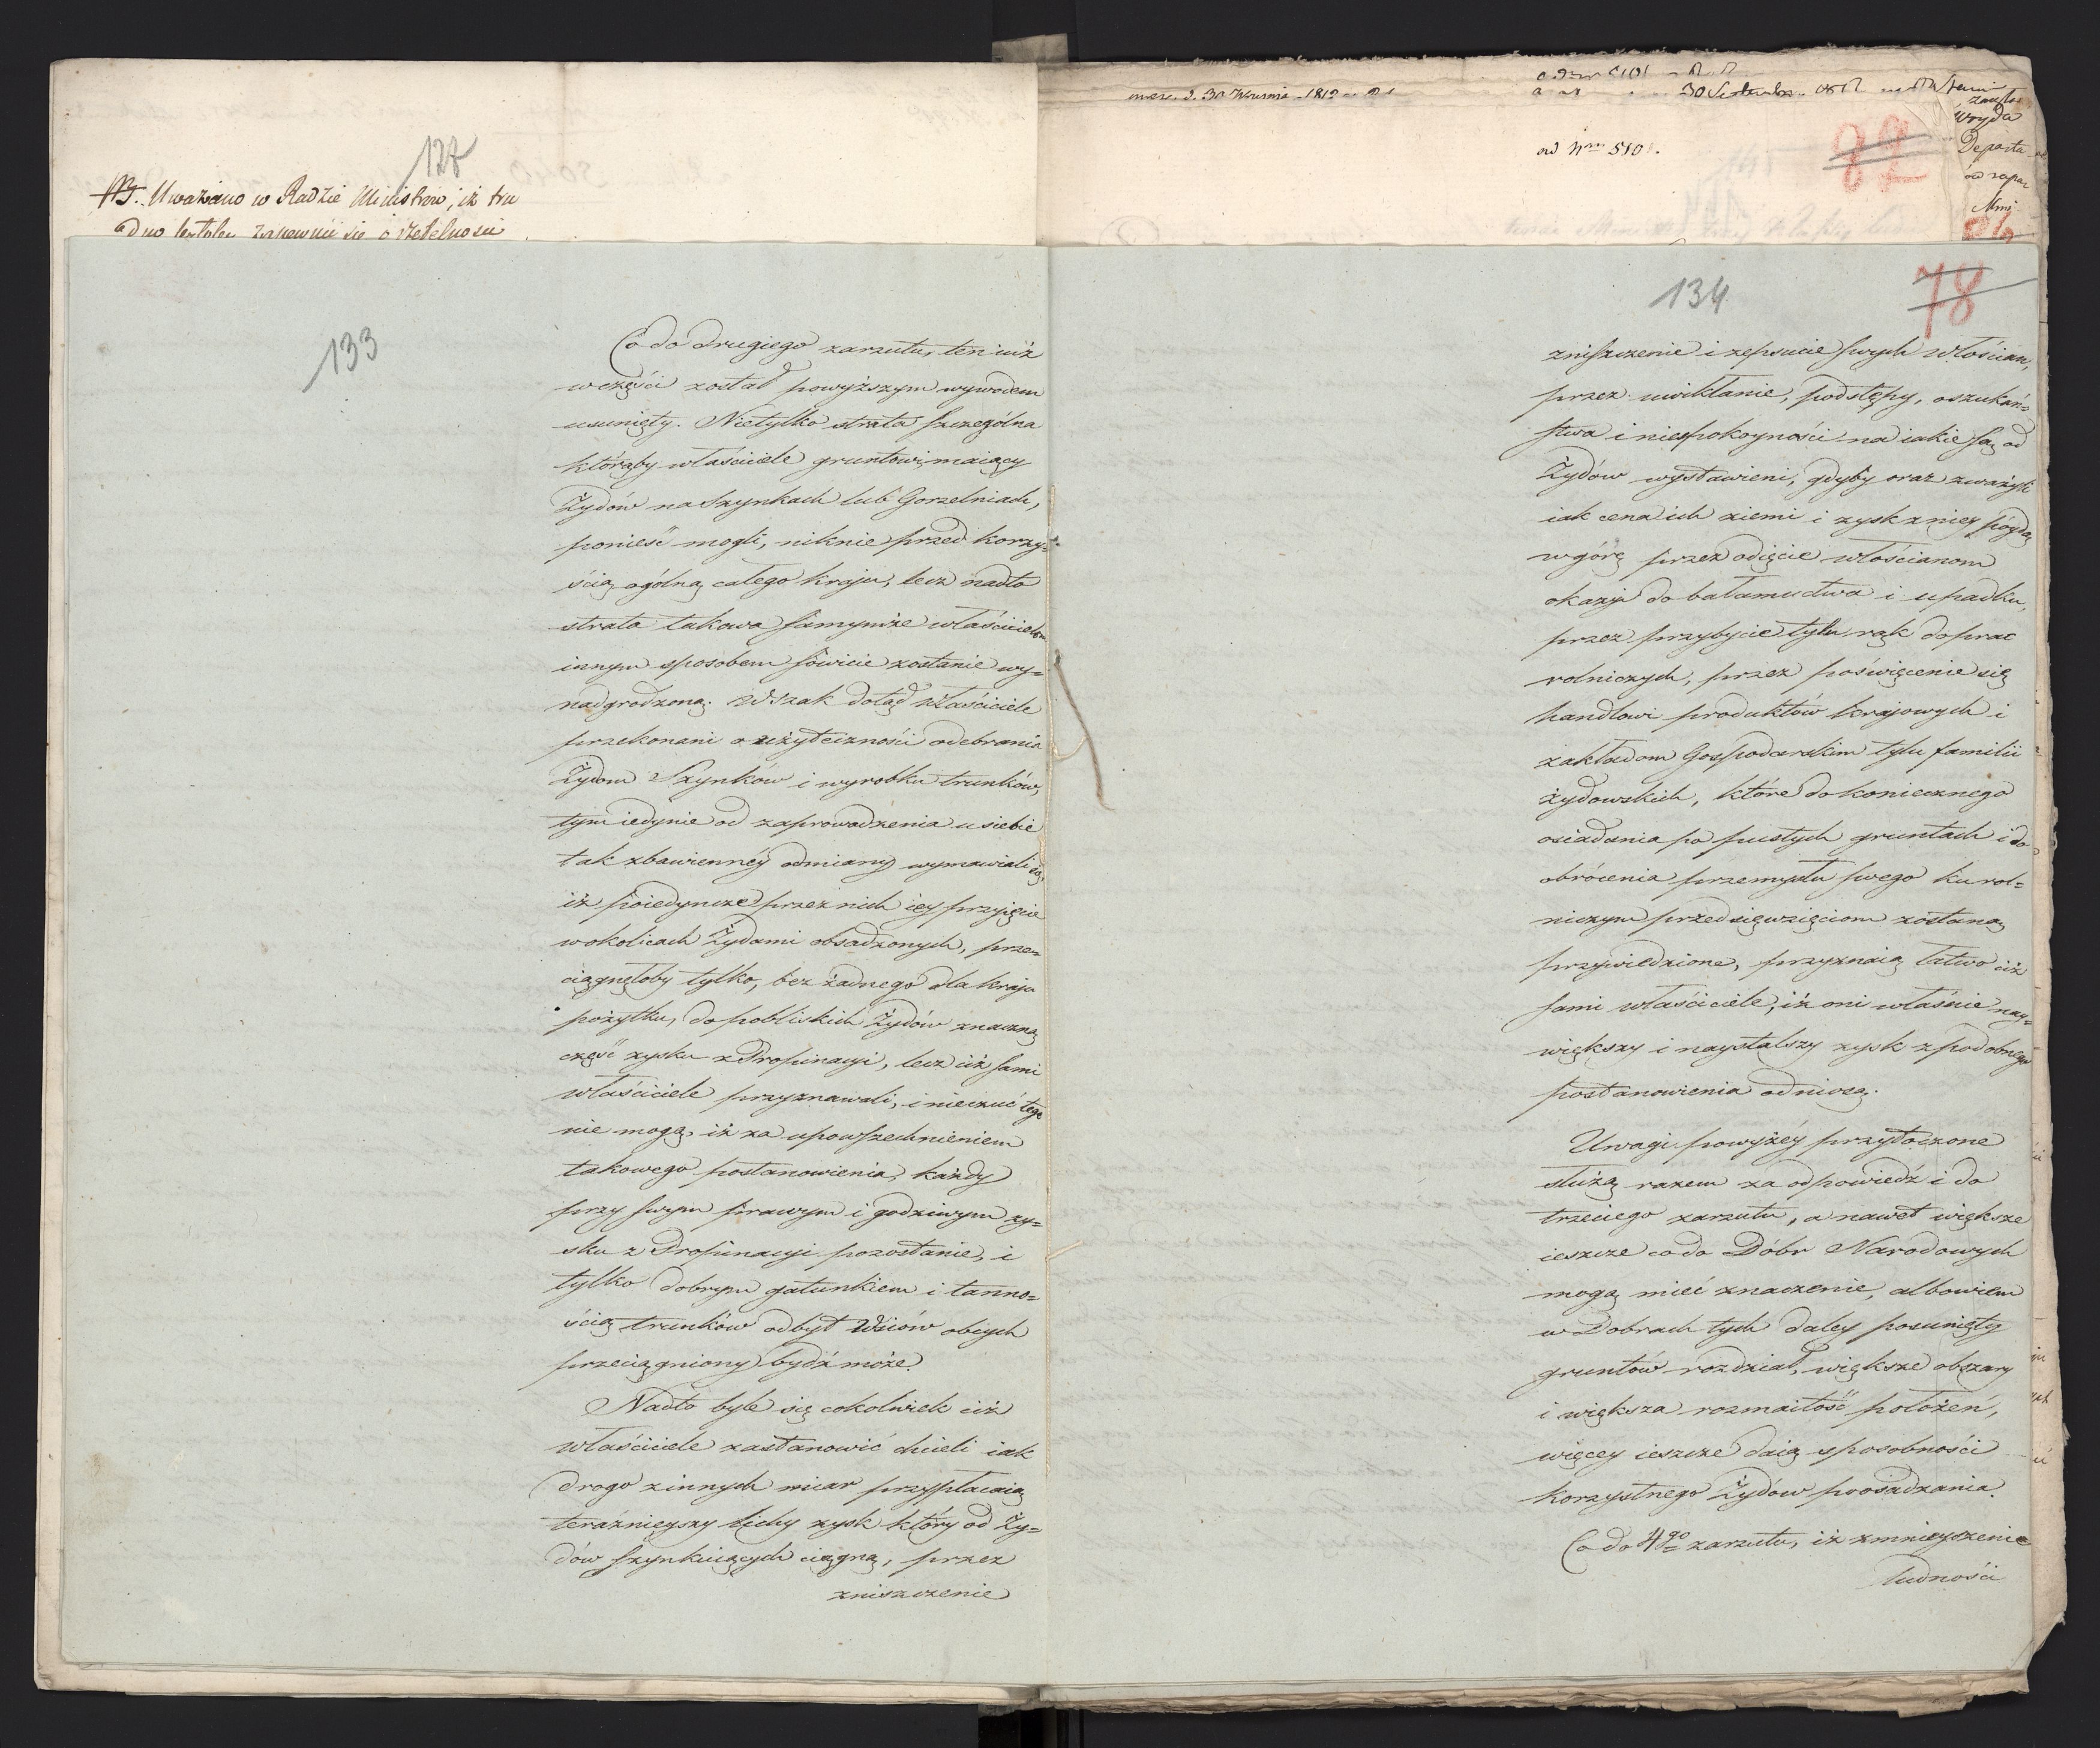 128
NB. Uważano w Radzie Ministrów, iż tru
dno lestolev zapewnić się o rzetelności
133
Co do drugiego zarzutu, ten iuż
w części został powyższym wywodem
usunięty. Nietylko strata szczególna
którąby właściciele gruntowi maiący
Żydów na Szynkach lub Gorzelniach,
ponieść mogli, niknie przed korzy=
ścią ogólną całego kraju, lecz nadto
strata takowa samymże właścicielom
innym sposobem sowicie zostanie wy=
nadgrodzoną. Wszak dotąd właściciele
przekonani o użyteczności odebrania
Żydom Szynków i wyrobku trunków,
tym iedynie od zaprowadzenia u siebie
tak zbawiennéy odmiany wymawiali się,
iż poiedyncze przez nich iey przyięcie
w okolicach Żydami obsadzonych, prze=
ciągnęłoby tylko, bez żadnego dla kraju
pożytku, do pobliskich Żydów znaczną
część zysku z Propinacyi, lecz ciż sami
właściciele przyznawali, i nieczuć tego
nie mogą, iż za upowszechnieniem
takowego postanowienia, każdy
przy swym prawym i godziwym zy=
sku z Propinacyi pozostanie, i
tylko dobrym gatunkiem i tanno=
ścią trunków odbyt Wsiów obcych
przeciągniony bydź może.
Nadto byle się cokolwiek ciż
właściciele zastanowić chcieli iak
drogo z innych miar przypłacaią
teraźnieyszy lichy zysk który od Ży=
dów szynkuiących ciągną, przez
zniszczenie
mase. d. 30 Września 1812
30 Septembra 1812
ad Nrm 5101.
82
134
78
zniszczenie i zepsucie swych włościan,
przez uwikłanie, podstępy, oszukań=
stwa i niespokoyności na iakie są od
Żydów wystawieni, gdyby oraz zważyli
iak cena ich ziemi i zysk z niey póydą
w górę przez odięcie włościanom
okazyi do bałamuctwa i upadku,
przez przybycie tylu rąk do prac
rolniczych, przez poświęcenie się
handlowi produktów krajowych i
zakładom Gospodarskim tylu familii
żydowskich, które do koniecznego
osiadania po pustych gruntach i do
obrócenia przemysłu swego ku rol=
niczym przedsięwzięciom zostaną
przywiedzione, przyznaią łatwo ciż
sami właściciele, iż oni właśnie nay=
większy i naystalszy zysk z podobnego
postanowienia odniosą.
Uwagi powyżéy przytoczone
służą razem za odpowiedź i do
trzeciego zarzutu, a nawet większe
ieszcze co do Dóbr Narodowych
mogą mieć znaczenie, albowiem
w Dobrach tych daley posunięty
gruntów rozdział, większe obszary
i większa rozmaitość położeń,
więcey ieszcze daią sposobności
korzystnego Żydów poosadzania.
Co do 4go zarzutu, iż zmnieyszenie
ludności